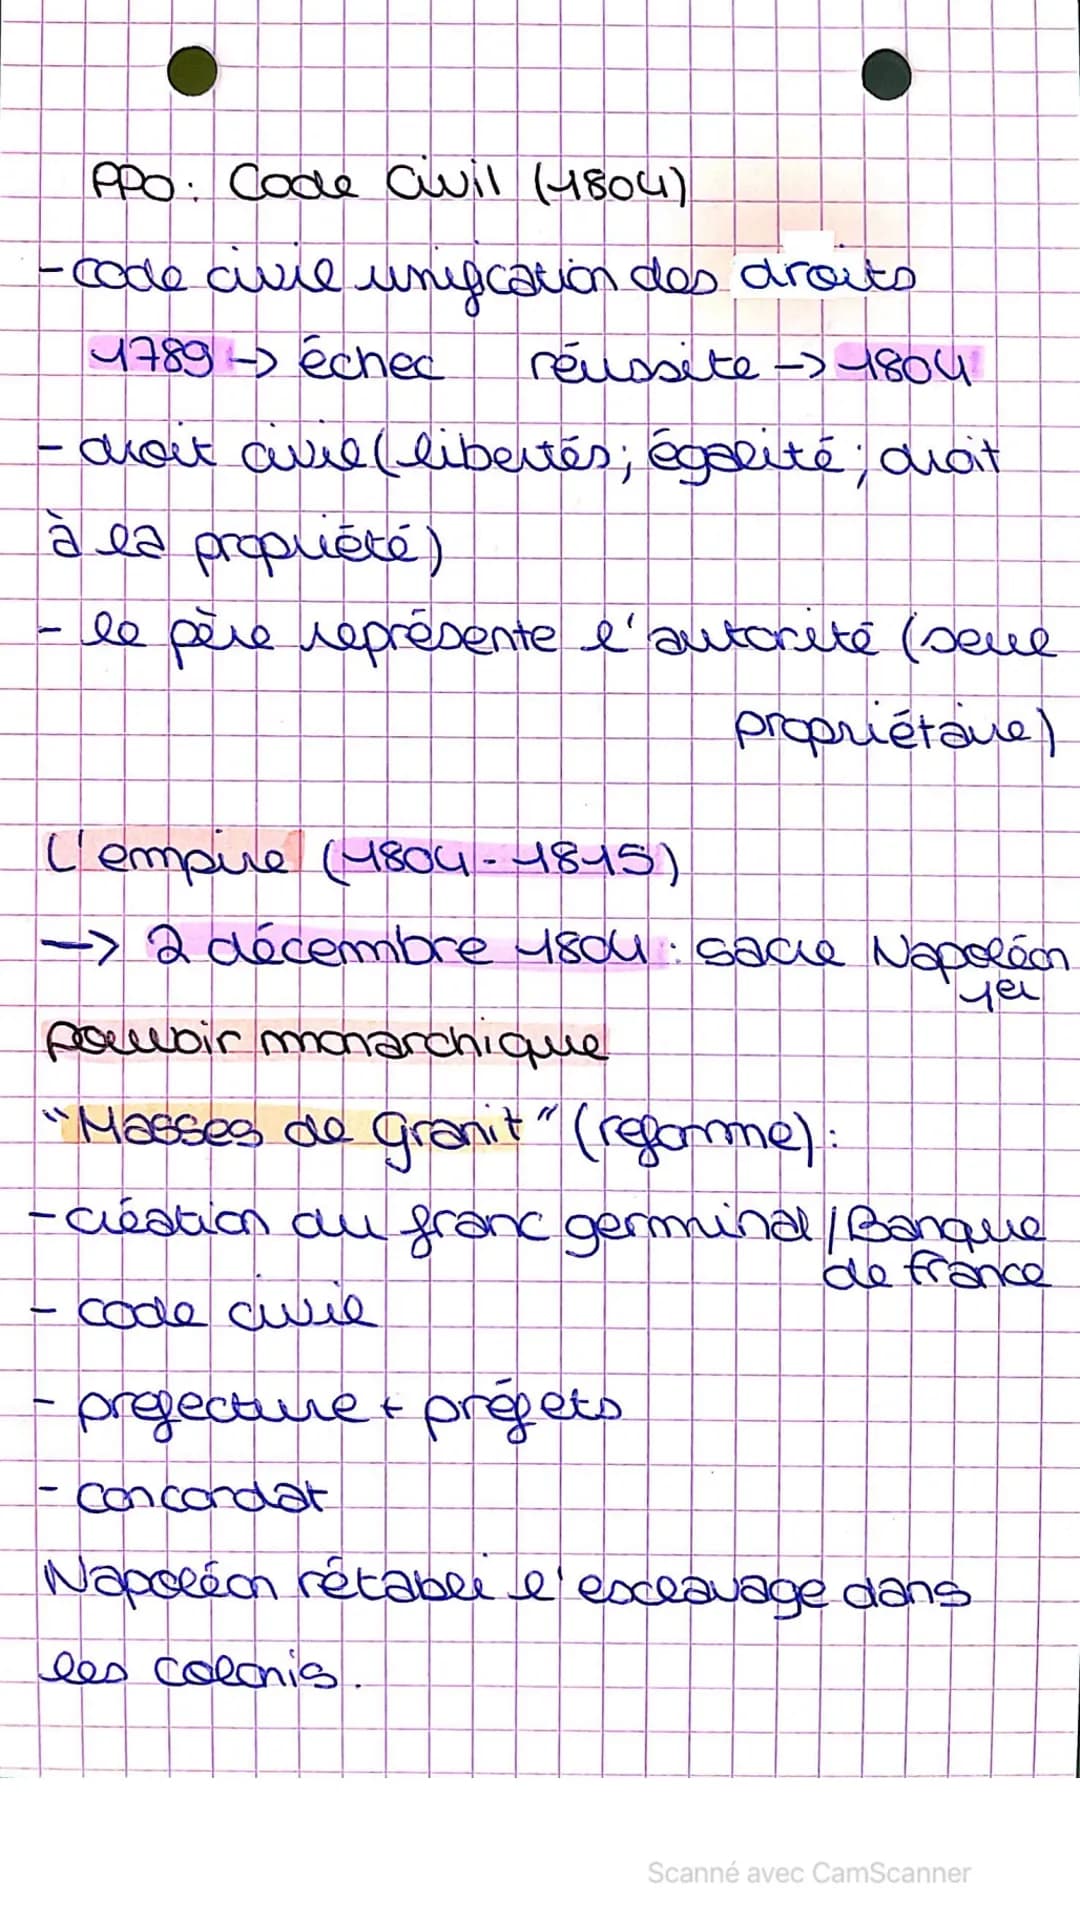 PPO: Code Civil (1804)
- code civil unification des droits
1789 -> échec réussite -> 1804
- droit civil (libertés; égalité; droit
à la propriété)
- le père représente l'autorité (seul
propriétaire)
L'empire (1804-1815)
-> 2 décembre 1804: sacre Napoléon
1er
pouvoir monarchique
"Masses de granit" (reforme):
- création du franc germinal / Banque
de france
- code civil
- prefecture + préfets
- concordat
Napoléon rétabli l'esclavage dans
les colonis.
Scanné avec CamScanner